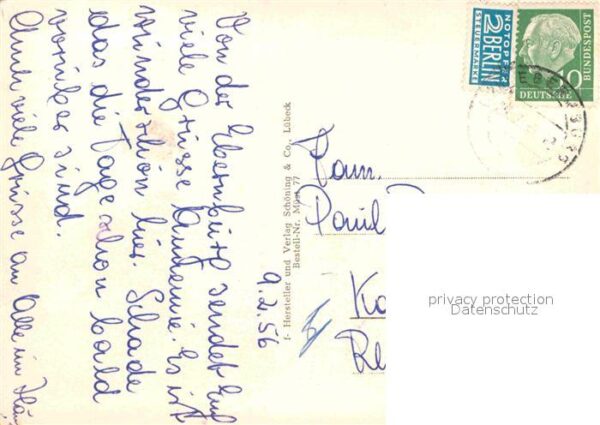 Von der Ebernburg sendet Euch
viele Grüsse Annemie. Es ist
wunderschön hier. Schade
das die Tage schon bald
vorüber sind.
Auch viele Grüsse an Alle im
9.2.56
Hersteller und Verlag Schöning & Co., Lübeck
Bestell-Nr. Müst. 77
Fam.
Paul
NOTOPFER
2 BERLIN
STEUERMARKE
10
DEUTSCHE
BUNDESPOST
privacy protection
Datenschutz